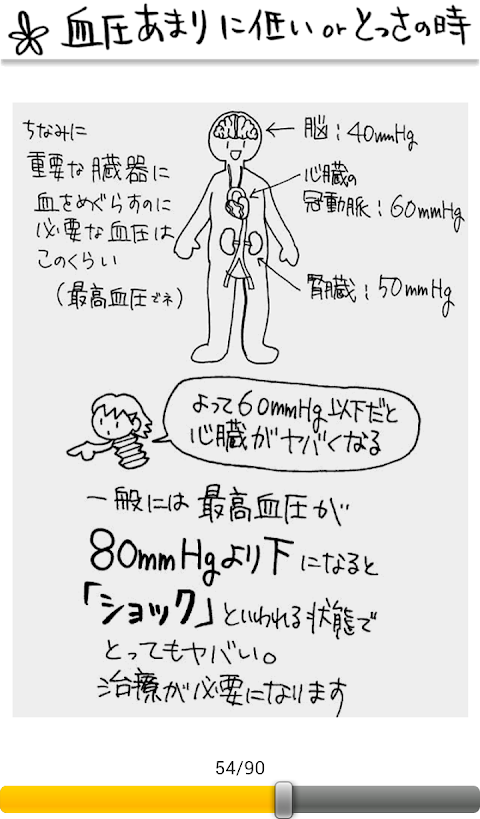 血圧あまりに低い or とっさの時
ちなみに
重要な臓器に
血をめぐらすのに
必要な血圧は
このくらい
(最高血圧でネ)
脳:40mmHg
心臓の
冠動脈:60mmHg
腎臓:50mmHg
よって60mmHg以下だと
心臓がヤバくなる
一般には最高血圧が
80mmHgより下になると
「ショック」といわれる状態で
とってもヤバい。
治療が必要になります
54/90